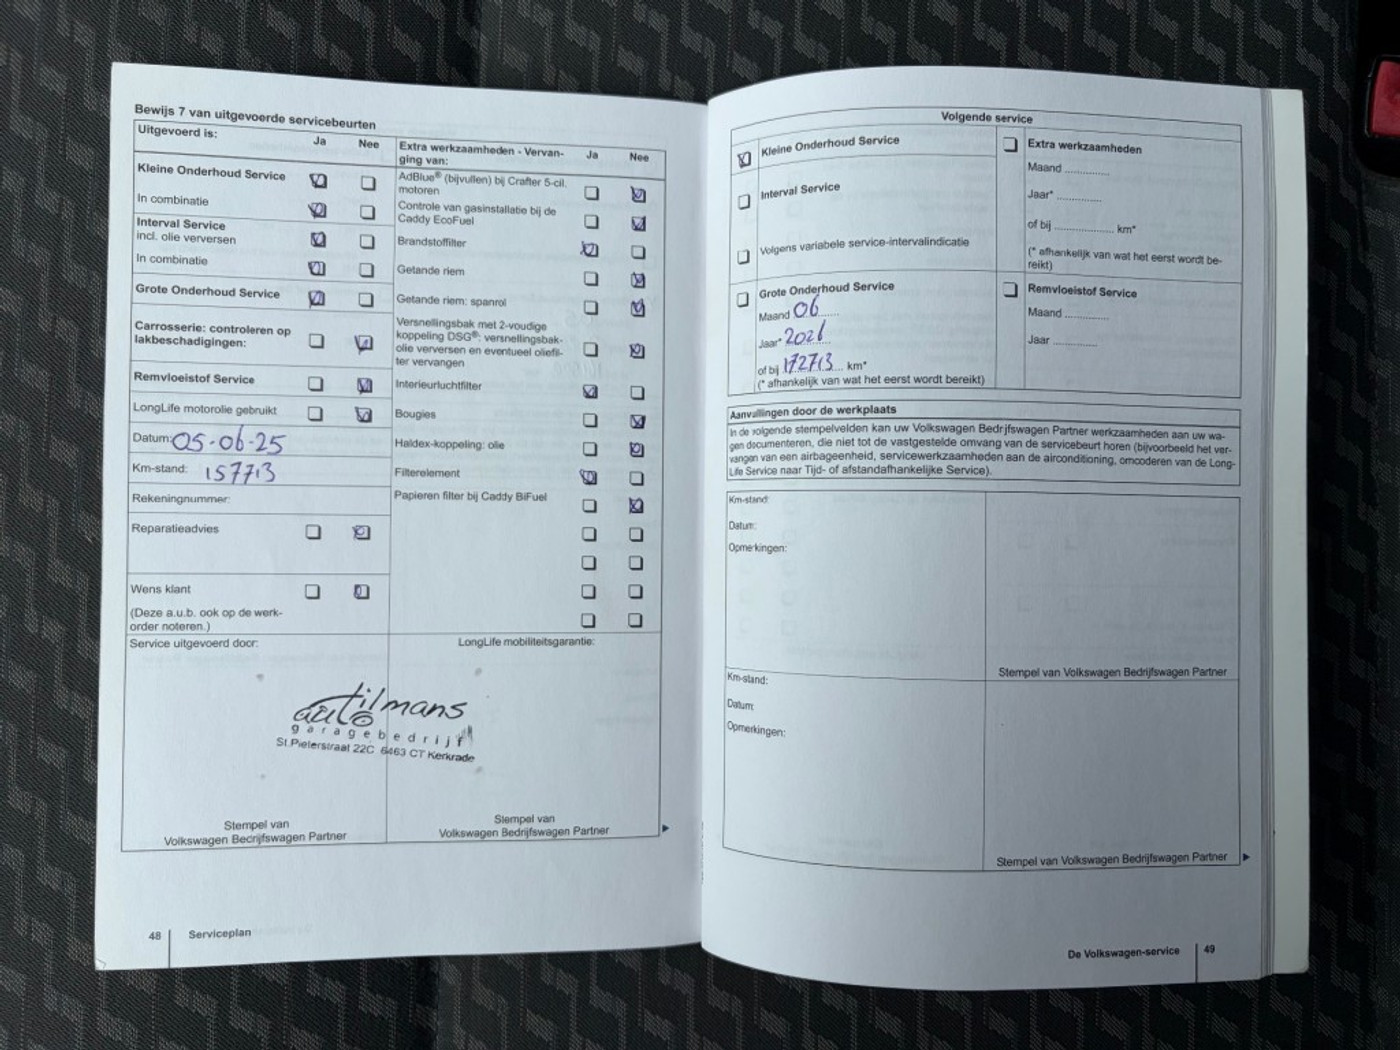 Bewijs 7 van uitgevoerde servicebeurten
Uitgevoerd is:
Ja
Nee
Kleine Onderhoud Service
In combinatie
Interval Service
incl. olie verversen
In combinatie
Grote Onderhoud Service
Carrosserie: controleren op
lakbeschadigingen:
Remvloeistof Service
LongLife motorolie gebruikt
Datum: 05-06-25
Km-stand: 157713
Rekeningnummer:
Reparatieadvies
Wens klant
(Deze a.u.b. ook op de werk-
order noteren.)
Extra werkzaamheden - Vervan-
ging van:
Ja
Nee
AdBlue® (bijvullen) bij Crafter 5-cil.
motoren
Controle van gasinstallatie bij de
Caddy EcoFuel
Brandstoffilter
Getande riem
Getande riem: spanrol
Versnellingsbak met 2-voudige
koppeling DSG®: versnellingsbak-
olie verversen en eventueel oliefil-
ter vervangen
Interieurluchtfilter
Bougies
Haldex-koppeling: olie
Filterelement
Papieren filter bij Caddy BiFuel
Service uitgevoerd door:
LongLife mobiliteitsgarantie:
auto tilmans
garagebedrijf
St.Pieterstraat 22C 6463 CT Kerkrade
Stempel van
Volkswagen Bedrijfswagen Partner
Stempel van
Volkswagen Bedrijfswagen Partner
48
Serviceplan
Volgende service
Kleine Onderhoud Service
Interval Service
Volgens variabele service-intervalindicatie
Grote Onderhoud Service
Maand 06
Jaar* 2026
of bij 172713 km*
(* afhankelijk van wat het eerst wordt bereikt)
Extra werkzaamheden
Maand .............
Jaar* .............
of bij ................. km*
(* afhankelijk van wat het eerst wordt be-
reikt)
Remvloeistof Service
Maand ............
Jaar ............
Aanvullingen door de werkplaats
In de volgende stempelvelden kan uw Volkswagen Bedrijfswagen Partner werkzaamheden aan uw wa-
gen documenteren, die niet tot de vastgestelde omvang van de servicebeurt horen (bijvoorbeeld het ver-
vangen van een airbageenheid, servicewerkzaamheden aan de airconditioning, omcoderen van de Long-
Life Service naar Tijd- of afstandafhankelijke Service).
Km-stand:
Datum:
Opmerkingen:
Stempel van Volkswagen Bedrijfswagen Partner
Km-stand:
Datum:
Opmerkingen:
Stempel van Volkswagen Bedrijfswagen Partner
De Volkswagen-service
49